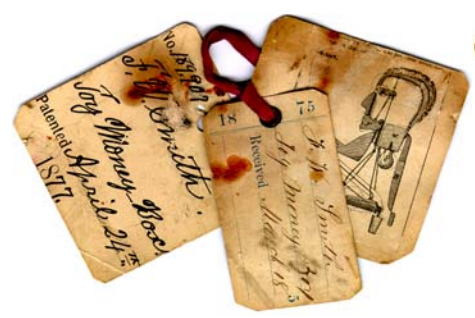 F. W. Smith.
Toy Money Box.
Patented April 24th
1877.
18 75
F. W. Smith
Toy Money Box
Received March 18 5